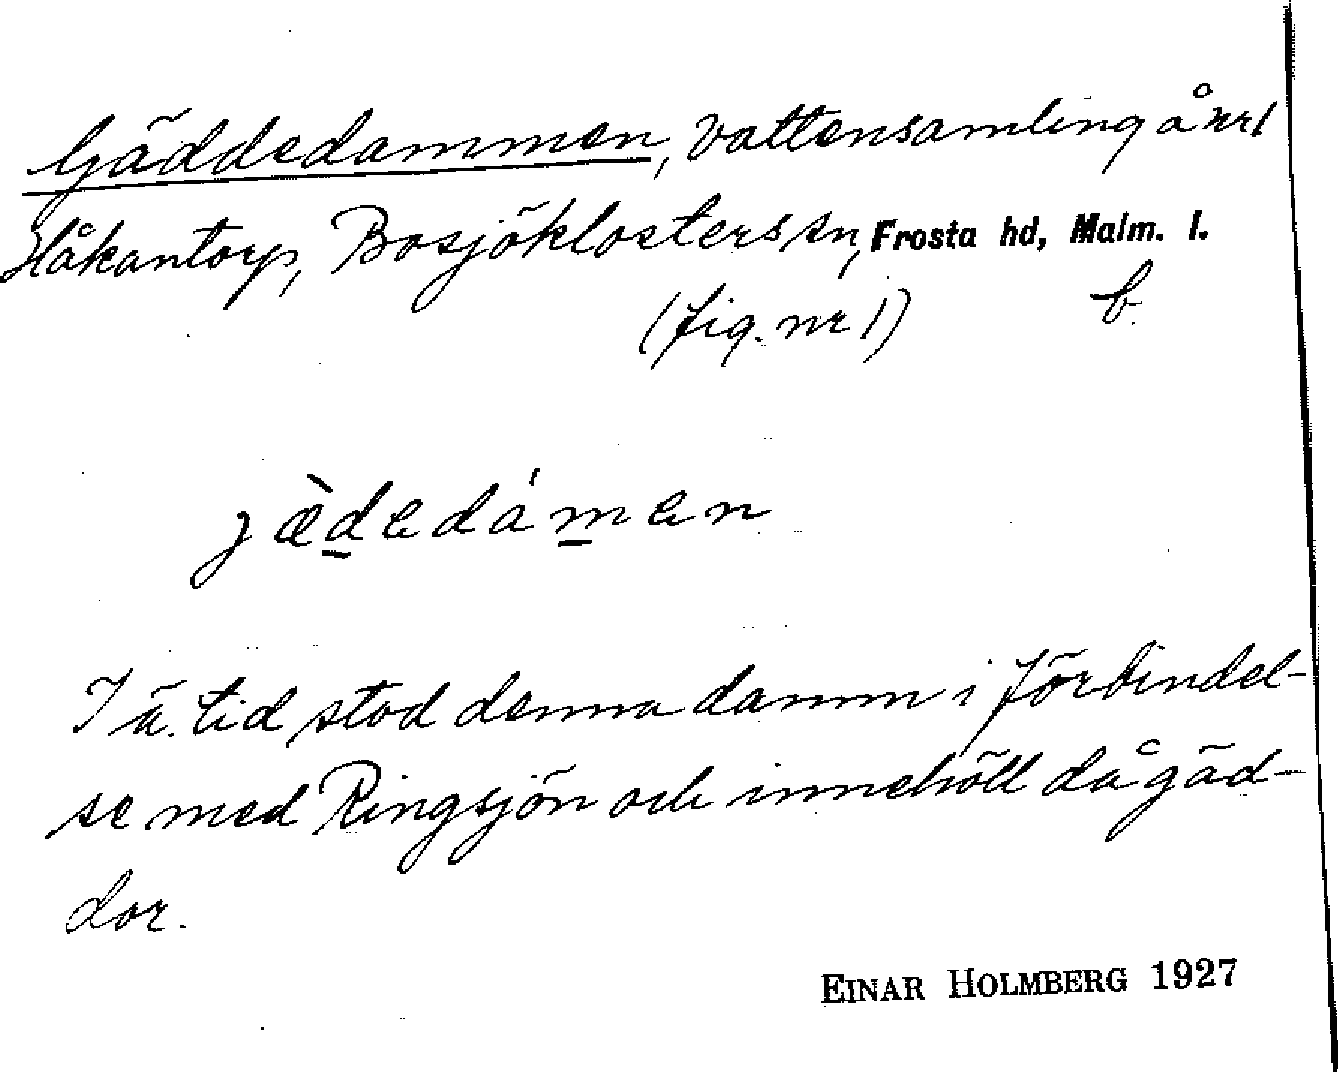 Gäddedammen, vattensamling å nr 1
Håkantorp, Bosjöklosters sn, Frosta hd, Malm. l.
(fig. nr 1) b.
jæ̀dedámen
I ä. tid stod denna damm i förbindel-
se med Ringsjön och innehöll då gäd-
dor.
EINAR HOLMBERG 1927